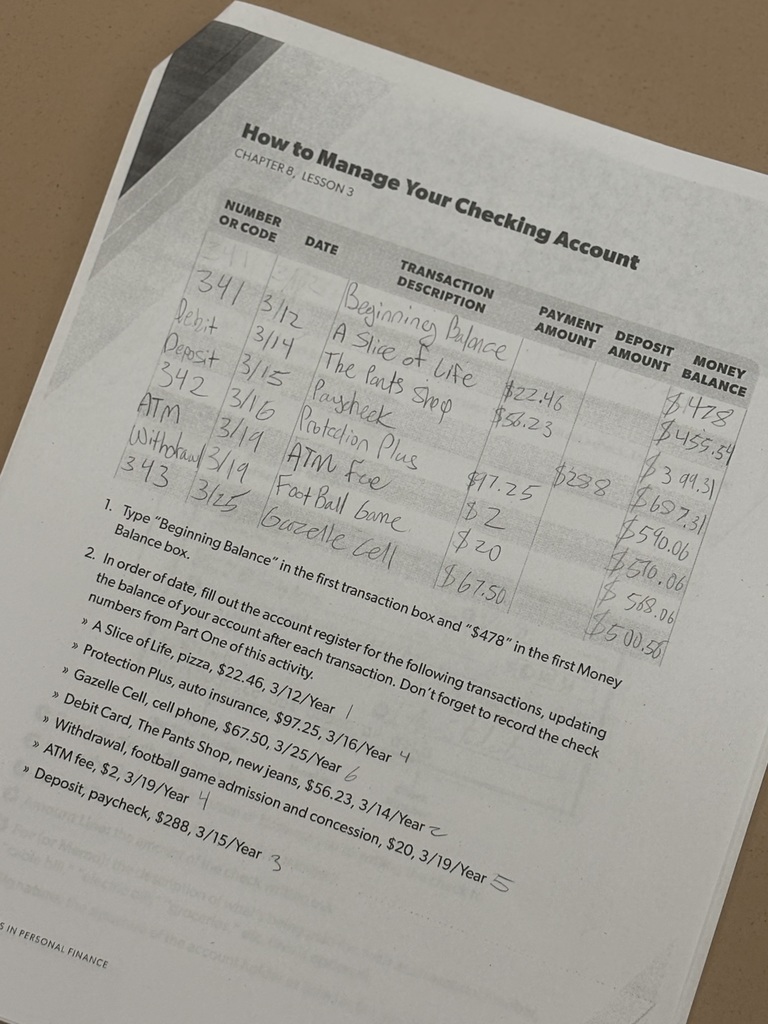 How to Manage Your Checking Account
CHAPTER 8, LESSON 3
NUMBER OR CODE DATE TRANSACTION DESCRIPTION PAYMENT AMOUNT DEPOSIT AMOUNT MONEY BALANCE
Beginning Balance $478
341 3/12 A Slice of Life $22.46 $455.54
Debit 3/14 The Pants Shop $56.23 $399.31
Deposit 3/15 Paycheck $288 $687.31
342 3/16 Protection Plus $97.25 $590.06
ATM 3/19 ATM Fee $2 $570.06
Withdrawal 3/19 FootBall Game $20 $568.06
343 3/25 Gazelle Cell $67.50 $500.56
1. Type “Beginning Balance” in the first transaction box and “$478” in the first Money
Balance box.
2. In order of date, fill out the account register for the following transactions, updating
the balance of your account after each transaction. Don’t forget to record the check
numbers from Part One of this activity.
» A Slice of Life, pizza, $22.46, 3/12/Year 1
» Protection Plus, auto insurance, $97.25, 3/16/Year 4
» Gazelle Cell, cell phone, $67.50, 3/25/Year 6
» Debit Card, The Pants Shop, new jeans, $56.23, 3/14/Year 2
» Withdrawal, football game admission and concession, $20, 3/19/Year 5
» ATM fee, $2, 3/19/Year 4
» Deposit, paycheck, $288, 3/15/Year 3
IN PERSONAL FINANCE